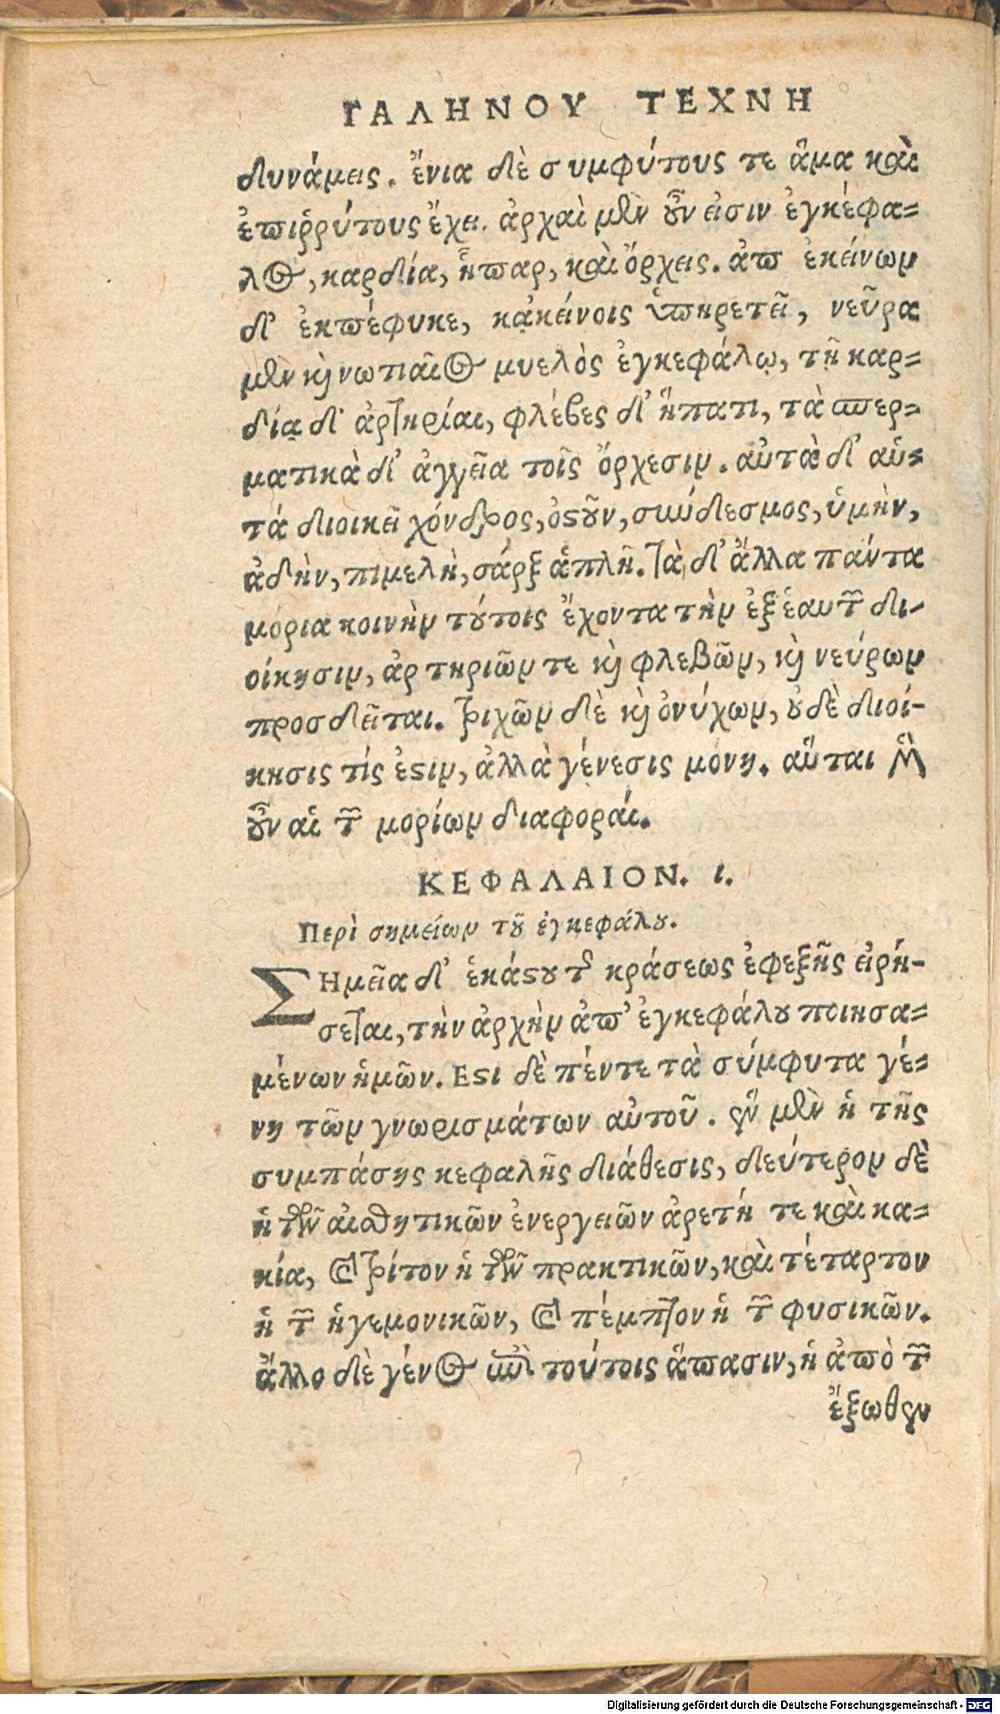 ΓΑΛΗΝΟΥ ΤΕΧΝΗ
δυνάμεις. ἔνια δὲ συμφύτους τε ἅμα καὶ
ἐπιῤῥύτους ἔχει. ἀρχαὶ μὲν οὖν εἰσιν ἐγκέφα-
λος, καρδία, ἧπαρ, καὶ ὄρχεις. ἀπ ἐκείνων
δ' ἐκπέφυκε, κᾀκείνοις ὑπηρετεῖ, νεῦρα
μὲν καὶ νωτιαῖος μυελὸς ἐγκεφάλῳ, τῇ καρ-
δίᾳ δ' ἀρτηρίαι, φλέβες δ' ἥπατι, τὰ σπερ-
ματικὰ δ' ἀγγεῖα τοῖς ὄρχεσιν. αὐτὰ δ' αὑ-
τά διοικεῖ χόνδρος, ὀστοῦν, σύνδεσμος, ὑμὴν,
ἀδὴν, πιμελὴ, σάρξ ἁπλῆ. τὰ δ' ἄλλα πάντα
μόρια κοινὴν τούτοις ἔχοντα τὴν ἐξ ἑαυτῶν δι-
οίκησιν, ἀρτηριῶν τε καὶ φλεβῶν, καὶ νεύρων
προσδεῖται. τριχῶν δὲ καὶ ὀνύχων, οὐδὲ διοί-
κησις τίς ἐστιν, ἀλλὰ γένεσις μόνη. αὗται μὲν
οὖν αἱ τῶν μορίων διαφοραί.
ΚΕΦΑΛΑΙΟΝ. ι.
Περὶ σημείων τοῦ ἐγκεφάλου.
ΣΗμεῖα δ' ἑκάστου τῆς κράσεως ἐφεξῆς εἰρή-
σεται, τὴν ἀρχὴν ἀπ' ἐγκεφάλου ποιησα-
μένων ἡμῶν. Εστι δὲ πέντε τὰ σύμφυτα γέ-
νη τῶν γνωρισμάτων αὐτοῦ. ἓν μὲν ἡ τῆς
συμπάσης κεφαλῆς διάθεσις, δεύτερον δὲ
ἡ τῶν αἰσθητικῶν ἐνεργειῶν ἀρετή τε καὶ κα-
κία, καὶ τρίτον ἡ τῶν πρακτικῶν, καὶ τέταρτον
ἡ τῶν ἡγεμονικῶν, καὶ πέμπτον ἡ τῶν φυσικῶν.
ἄλλο δὲ γένος ἐπὶ τούτοις ἅπασιν, ἡ ἀπὸ τῶν
ἔξωθεν
Digitalisierung gefördert durch die Deutsche Forschungsgemeinschaft - DFG